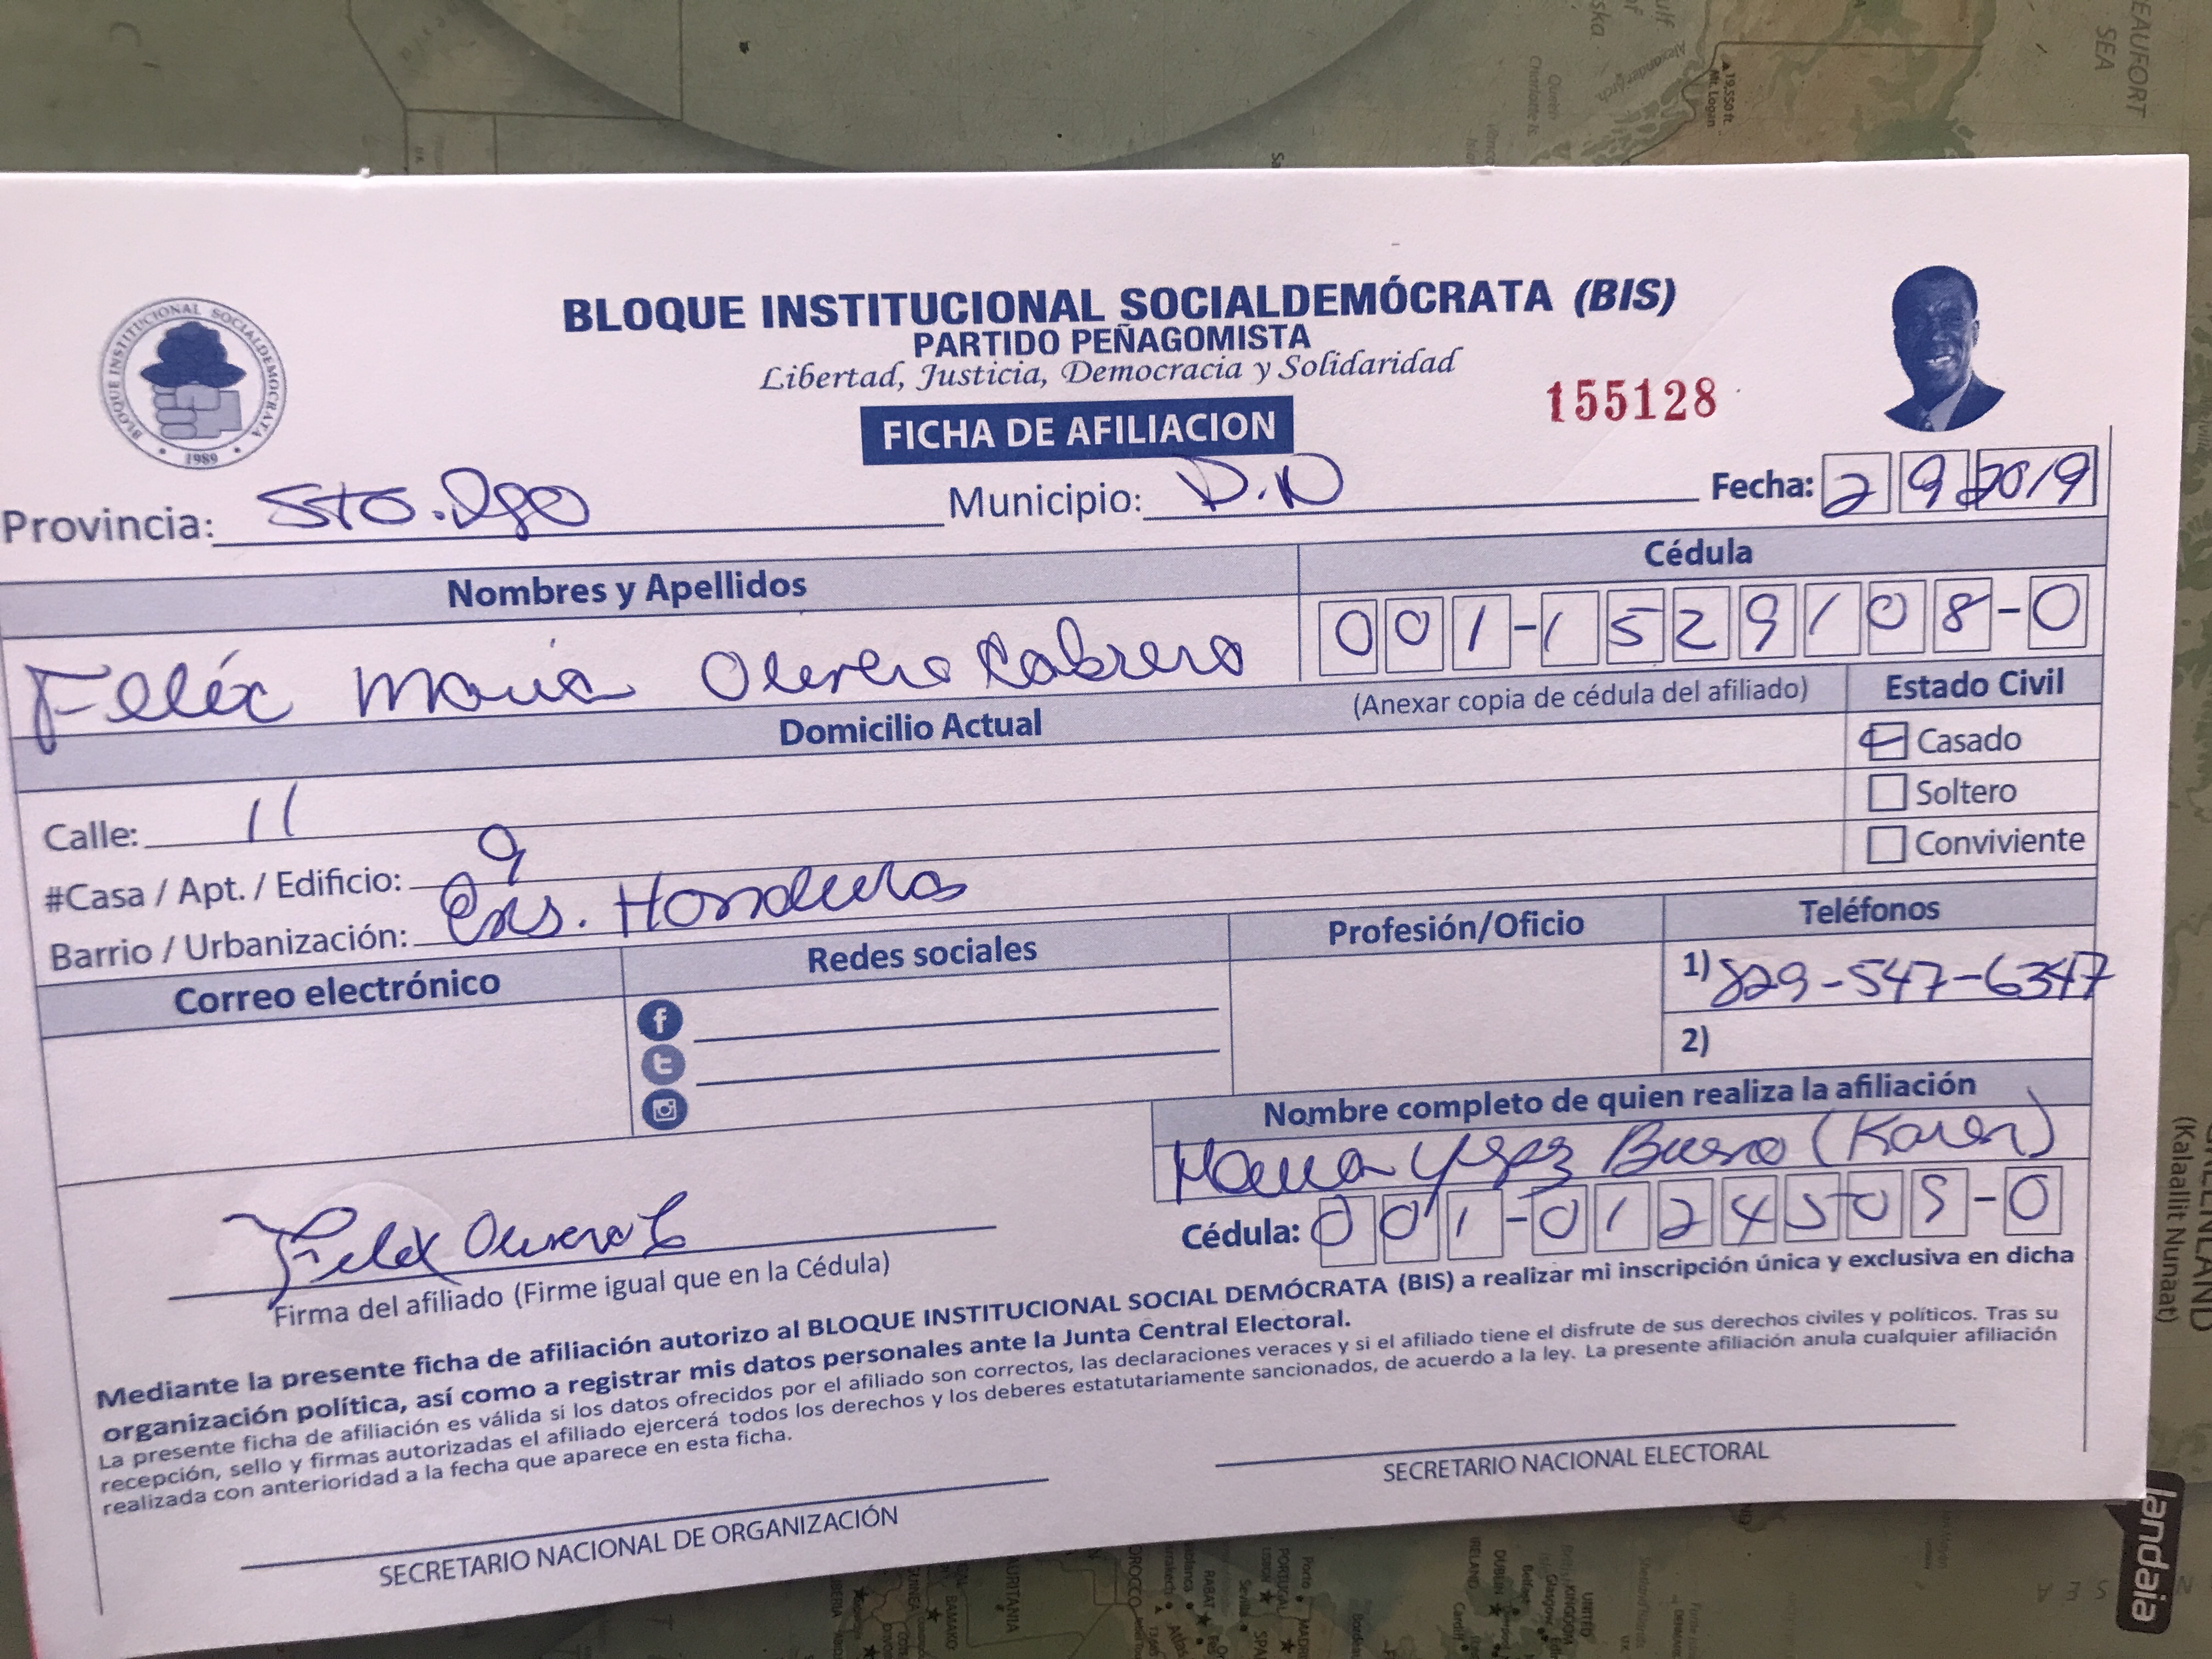 BLOQUE INSTITUCIONAL SOCIALDEMÓCRATA (BIS)
PARTIDO PEÑAGOMISTA
Libertad, Justicia, Democracia y Solidaridad
155128
FICHA DE AFILIACION
BLOQUE INSTITUCIONAL SOCIALDEMOCRATA
1989
Provincia: Sto. Dgo Municipio: D.N Fecha: 2 9 2019
Nombres y Apellidos Cédula
Feléx María Cabrera 001-1529108-0
(Anexar copia de cédula del afiliado) Estado Civil
Domicilio Actual
Casado
Soltero
Conviviente
Calle: 11
#Casa / Apt. / Edificio: 9
Barrio / Urbanización: Ens. Honduras
Correo electrónico Redes sociales Profesión/Oficio Teléfonos
1) 829-547-6347
2)
Nombre completo de quien realiza la afiliación
(Karen)
Cédula: 001-0124505-0
Felex
Firma del afiliado (Firme igual que en la Cédula)
Mediante la presente ficha de afiliación autorizo al BLOQUE INSTITUCIONAL SOCIAL DEMÓCRATA (BIS) a realizar mi inscripción única y exclusiva en dicha
organización política, así como a registrar mis datos personales ante la Junta Central Electoral.
La presente ficha de afiliación es válida si los datos ofrecidos por el afiliado son correctos, las declaraciones veraces y si el afiliado tiene el disfrute de sus derechos civiles y políticos. Tras su
recepción, sello y firmas autorizadas el afiliado ejercerá todos los derechos y los deberes estatutariamente sancionados, de acuerdo a la ley. La presente afiliación anula cualquier afiliación
realizada con anterioridad a la fecha que aparece en esta ficha.
SECRETARIO NACIONAL DE ORGANIZACIÓN
SECRETARIO NACIONAL ELECTORAL
BEAUFORT
SEA
19,550 ft.
Mt. Logan
(Kalaallit Nunaat)
landaia
BAMAKO
RABAT
PORTUGAL
Porto
DUBLIN
Cardiff
UNITED
KINGDOM